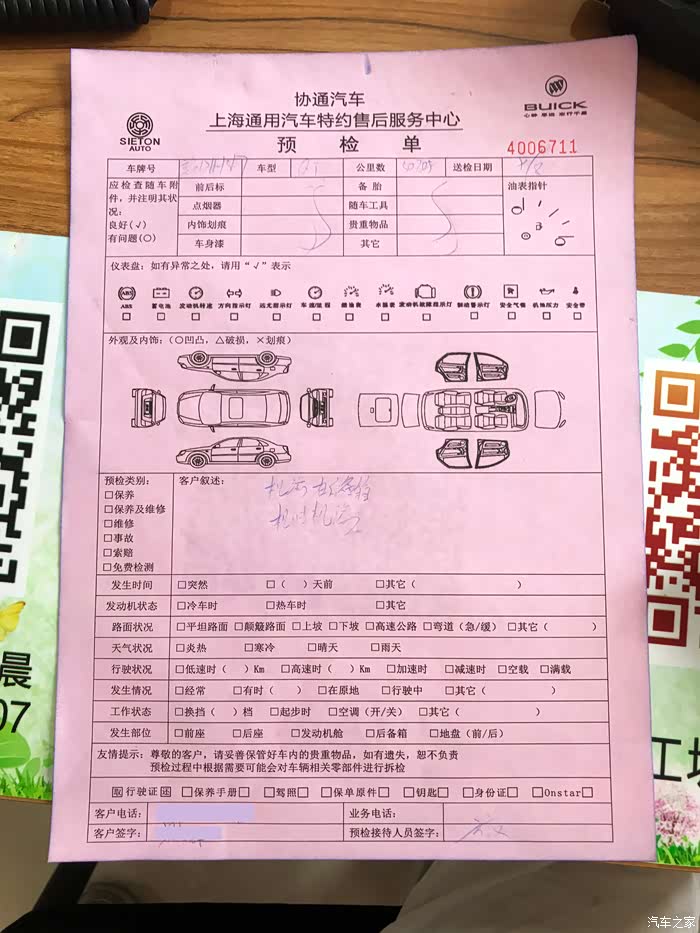 协通汽车
上海通用汽车特约售后服务中心
预检单
SIETON
AUTO
BUICK
心静 思远 志行千里
4006711
车牌号 车型 公里数 送检日期
应检查随车附件，并注明其状况：
良好(√)
有问题(○)
前后标 备胎 油表指针
点烟器 随车工具
内饰划痕 贵重物品
车身漆 其它
仪表盘：如有异常之处，请用“√”表示
ABS 蓄电池 发动机转速 方向指示灯 远光指示灯 车速里程 燃油表 水温表 发动机故障指示灯 制动警示灯 安全气囊 机油压力 安全带
外观及内饰：(○凹凸，△破损，×划痕)
预检类别：
□保养
□保养及维修
□维修
□事故
□索赔
□免费检测
客户叙述：
发生时间 □突然 □（ ）天前 □其它（ ）
发动机状态 □冷车时 □热车时 □其它
路面状况 □平坦路面 □颠簸路面 □上坡 □下坡 □高速公路 □弯道（急/缓） □其它（ ）
天气状况 □炎热 □寒冷 □晴天 □雨天
行驶状况 □低速时（ ）Km □高速时（ ）Km □加速时 □减速时 □空载 □满载
发生情况 □经常 □有时（ ） □在原地 □行驶中 □其它（ ）
工作状态 □换挡（ ）档 □起步时 □空调（开/关） □其它（ ）
发生部位 □前座 □后座 □发动机舱 □后备箱 □地盘（前/后）
友情提示：尊敬的客户，请妥善保管好车内的贵重物品，如有遗失，恕不负责
预检过程中根据需要可能会对车辆相关零部件进行拆检
行驶证 □保养手册□ □驾照□ □保单原件□ □钥匙□ □身份证□ □Onstar□
客户电话： 业务电话：
客户签字： 预检接待人员签字：
晨
07
工坊
汽车之家